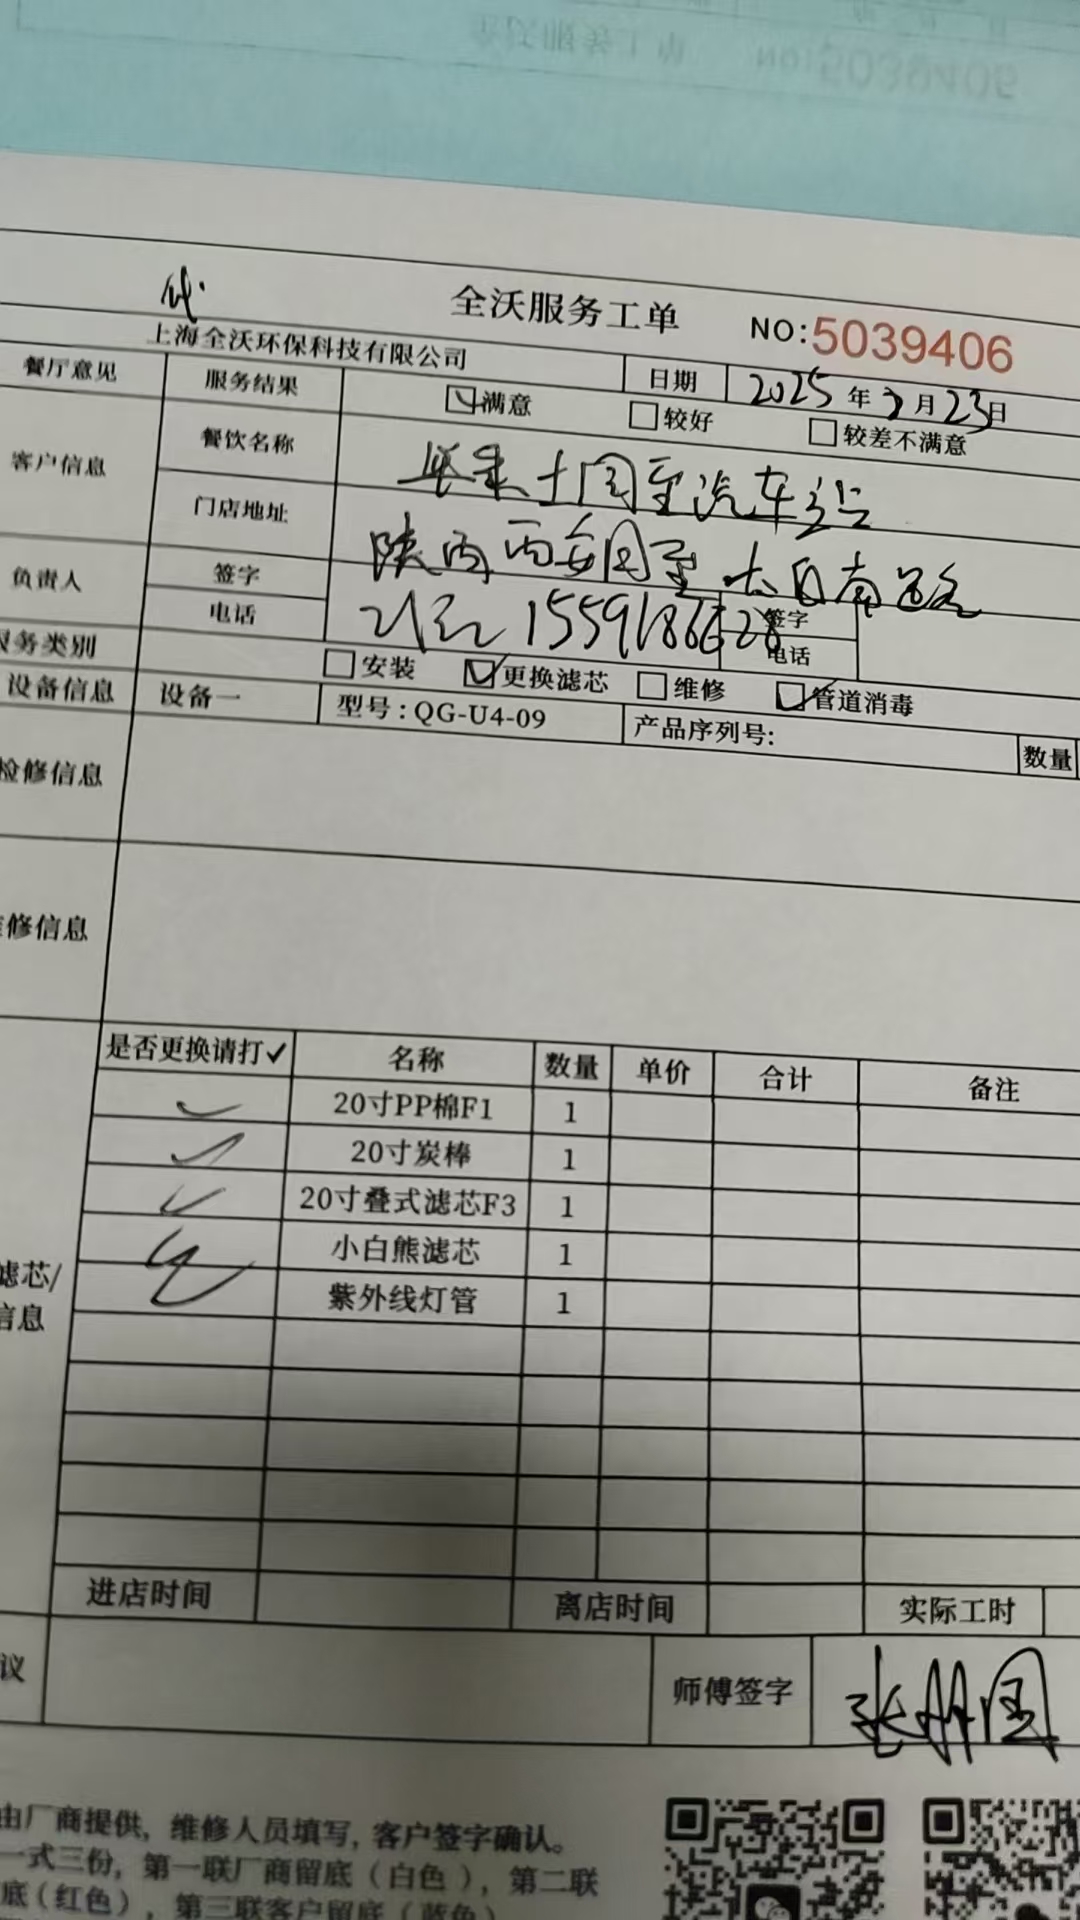 全沃服务工单 NO:5039406
上海全沃环保科技有限公司
日期 2025年 月23日
餐厅意见 服务结果 满意 较好 较差不满意
客户信息 餐饮名称 汽车站
门店地址 陕西西安周至太白南路
负责人 签字 签字
电话 电话
服务类别 安装 更换滤芯 维修 管道消毒
设备信息 设备一 型号:QG-U4-09 产品序列号: 数量
检修信息
修信息
是否更换请打✓ 名称 数量 单价 合计 备注
20寸PP棉F1 1
20寸炭棒 1
20寸叠式滤芯F3 1
小白熊滤芯 1
紫外线灯管 1
滤芯/
信息
进店时间 离店时间 实际工时
议 师傅签字 张 国
由厂商提供, 维修人员填写, 客户签字确认。
一式三份, 第一联厂商留底(白色), 第二联
底(红色), 第三联客户留底(蓝色)